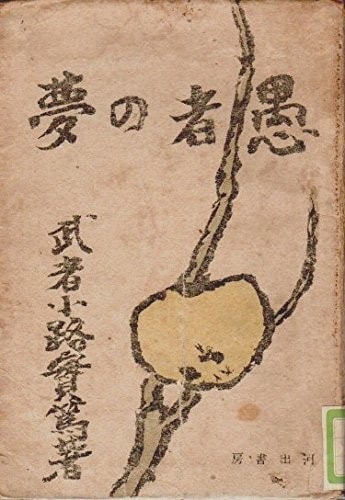 愚者の夢
武者小路實篤著
河出書房